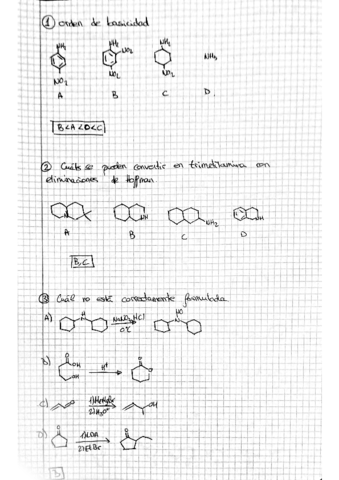 ① orden de basicidad
NH₂ NH₂ NO₂ NH₂ NH₃
NO₂ NO₂ NO₂
A B C D.
B<A<D<C
② Cuáles se pueden convertir en trimetilamina con
eliminaciones de Hoffman
N NH NH₂ NH
A B C D
B,C
③ Cuál no está correctamente formulada
A) H N NaNO₂, HCl 0°C NO N
b) O OH OH H⁺ O O
c) O 1) MeMgBr 2) H₃O⁺ OH
D) O 1) LDA 2) EtBr O